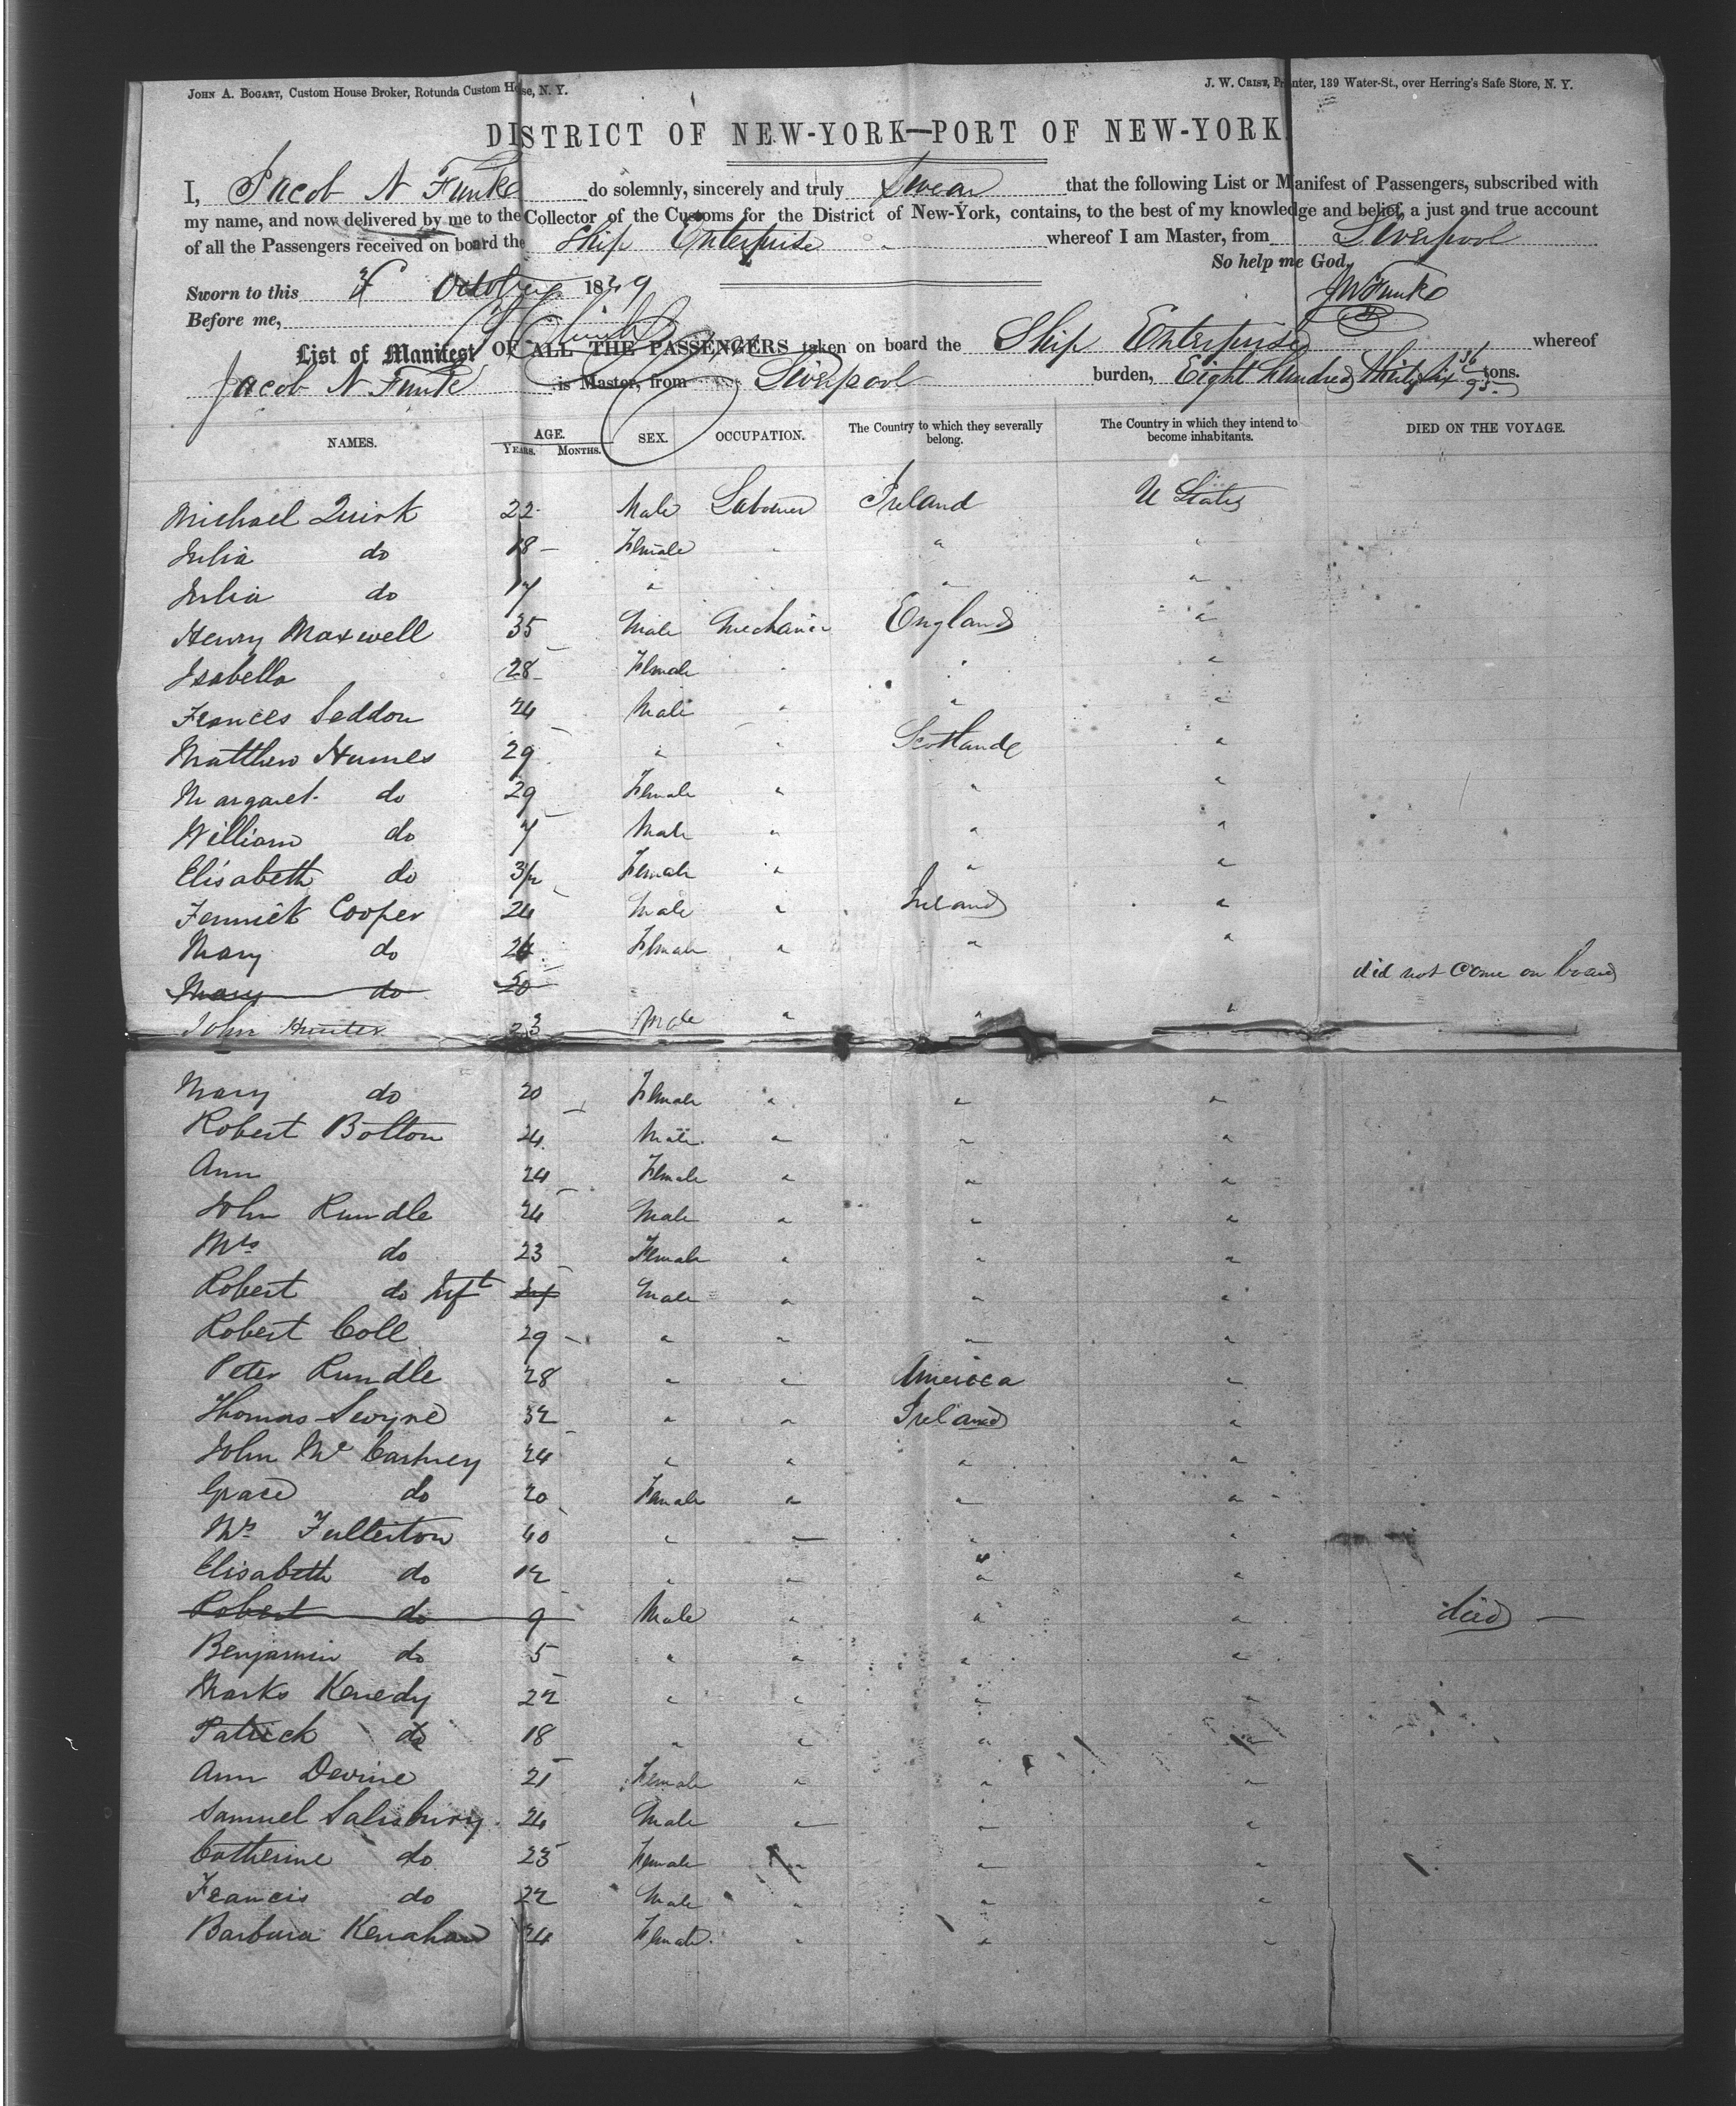 JOHN A. BOGART, Custom House Broker, Rotunda Custom House, N. Y.
J. W. CRIST, Printer, 139 Water-St., over Herring's Safe Store, N. Y.
DISTRICT OF NEW-YORK—PORT OF NEW-YORK
I, Jacob N Funke do solemnly, sincerely and truly Swear that the following List or Manifest of Passengers, subscribed with
my name, and now delivered by me to the Collector of the Customs for the District of New-York, contains, to the best of my knowledge and belief, a just and true account
of all the Passengers received on board the Ship Enterprise whereof I am Master, from Liverpool
So help me God,
Sworn to this October 1849 JN Funke
Before me,
List of Manifest OF ALL THE PASSENGERS taken on board the Ship Enterprise whereof
Jacob N Funke is Master, from Liverpool burden, Eight hundred thirty six 36/95 tons.
NAMES. AGE. YEARS. MONTHS. SEX. OCCUPATION. The Country to which they severally belong. The Country in which they intend to become inhabitants. DIED ON THE VOYAGE.
Michael Quirk 22 Male Labourer Ireland U States
Julia do 18 Female " "
Julia do 17 " " "
Henry Maxwell 35 Male Mechanic England "
Isabella 28 Female " " "
Frances Seddon 24 Male " " "
Matthew Humes 29 " " Scotland "
Margaret do 29 Female " " "
William do 7 Male " " "
Elisabeth do 3/12 Female " " "
Fennick Cooper 24 Male " Ireland "
Mary do 26 Female " " "
Mary do 20 did not come on board
John Hunter 23 Male " " "
Mary do 20 Female " " "
Robert Bolton 24 Male " " "
Ann 24 Female " " "
John Rundle 24 Male " " "
Mrs do 23 Female " " "
Robert do Inft Male " " "
Robert Coll 29 " " " "
Peter Rundle 28 " " America "
Thomas Swyne 32 " " Ireland "
John McCartney 24 " " " "
Grace do 20 Female " " "
Mrs Fullerton 40 " " " "
Elisabeth do 12 " " " "
Robert do 9 Male " " " died
Benjamin do 5 " " " "
Marks Kenedy 22 " " " "
Patrick do 18 " " " "
Ann Devine 21 Female " " "
Samuel Salisbury 24 Male " " "
Catherine do 23 Female " " "
Francis do 22 Male " " "
Barbara Kenahan 24 Female " " "